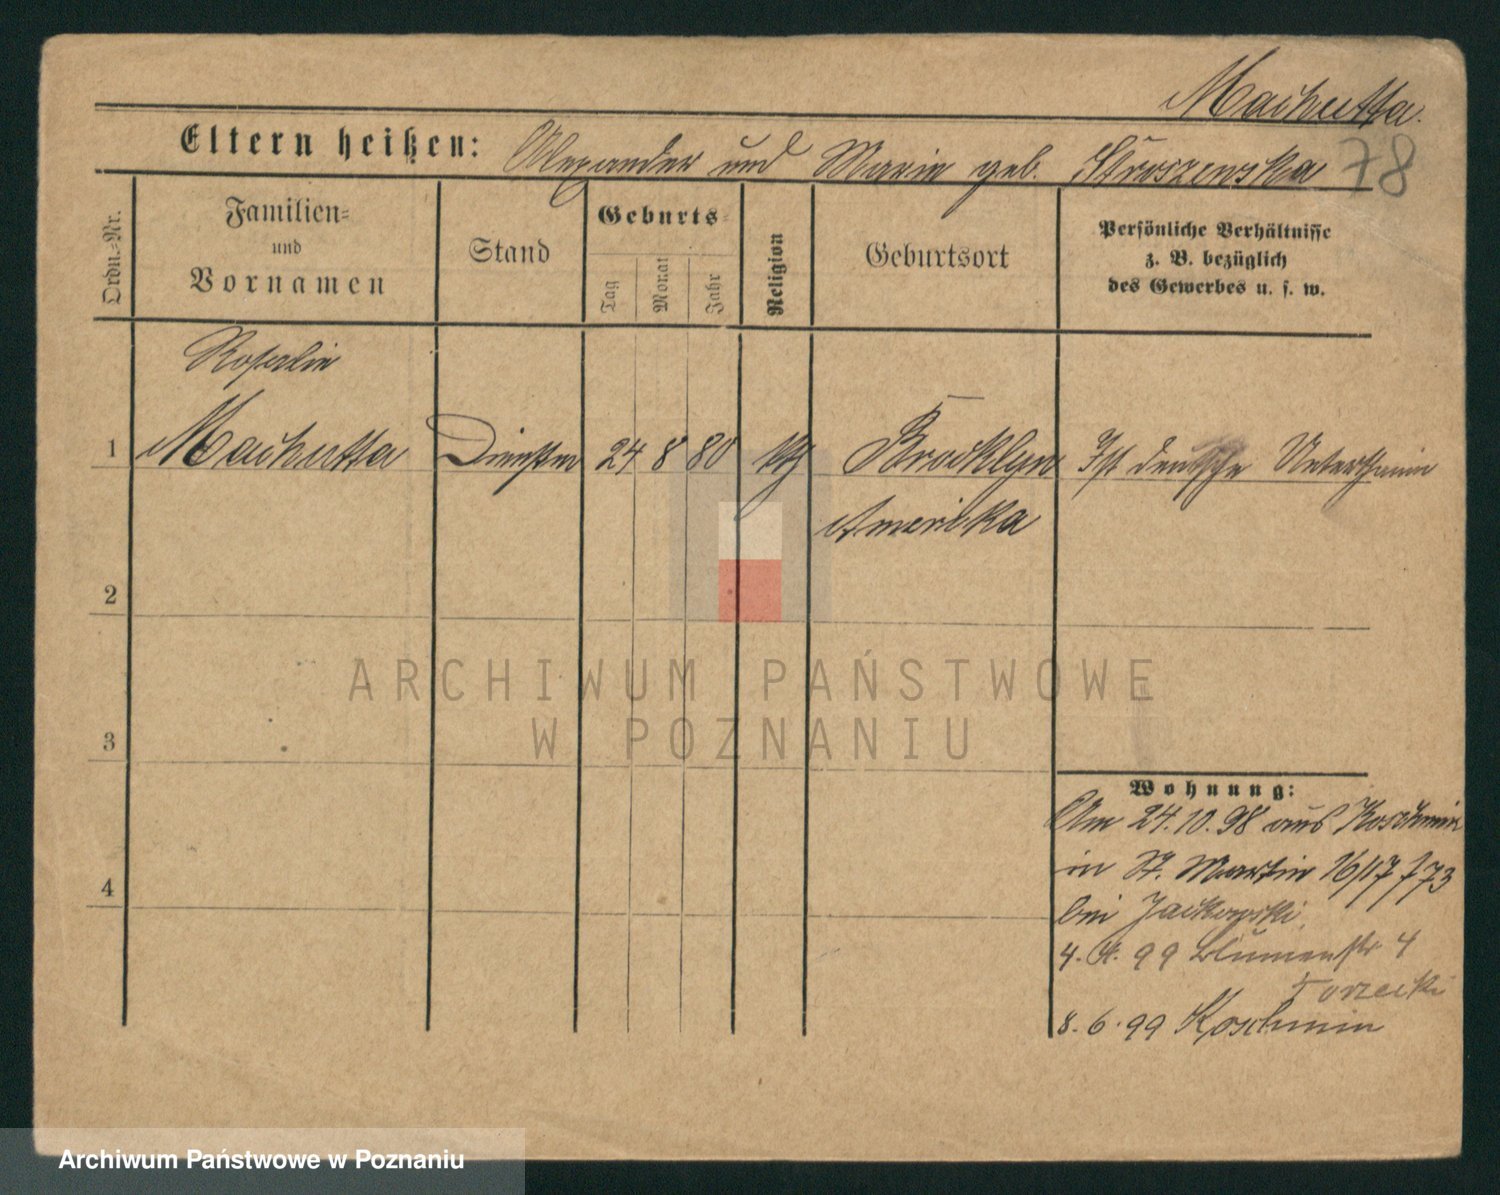 Machutta.
Eltern heißen: Alexander und Marie geb. Stroszewska
78
Ordn.=Nr.
Familien= und Vornamen
Stand
Geburts=
Tag
Monat
Jahr
Religion
Geburtsort
Persönliche Verhältnisse
z. B. bezüglich
des Gewerbes u. s. w.
Rosalie
1 Machutta Dienstm 24 8 80 kth Brocklyn Ist deutsche Unterthanin
Amerika
2
ARCHIWUM PAŃSTWOWE
W POZNANIU
3
Wohnung:
Am 24.10.98 aus Koschmin
in St. Martin 16/17
4
bei Jackowski
4. 4. 99 Blumenstr 4
Torzecki
8. 6. 99 Koschmin
Archiwum Państwowe w Poznaniu